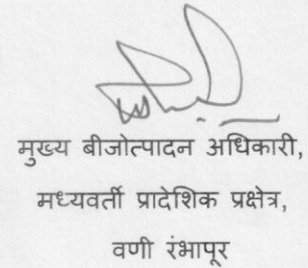 मुख्य बीजोत्पादन अधिकारी,
मध्यवर्ती प्रादेशिक प्रक्षेत्र,
वणी रंभापूर